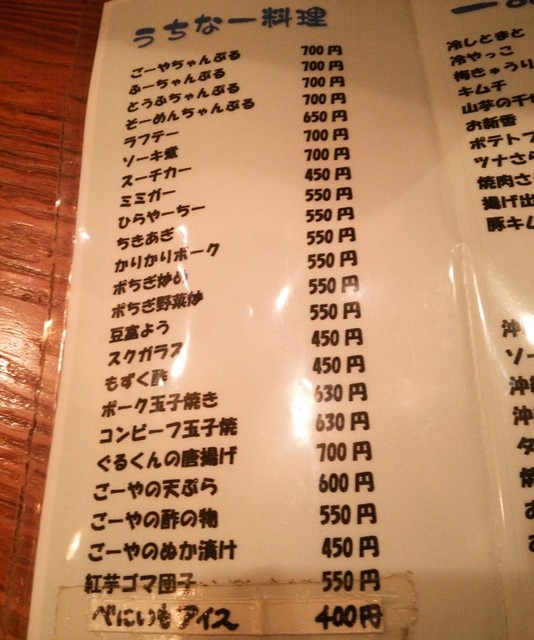 うちなー料理
ごーやちゃんぷる 700円
ふーちゃんぷる 700円
とうふちゃんぷる 700円
そーめんちゃんぷる 700円
ラフテー 650円
ソーキ煮 700円
スーチカー 700円
ミミガー 450円
ひらやーちー 550円
ちきあぎ 550円
かりかりポーク 550円
ポちぎ炒め 550円
ポちぎ野菜炒 550円
豆富よう 550円
スクガラス 450円
もずく酢 450円
ポーク玉子焼き 630円
コンビーフ玉子焼 630円
ぐるくんの唐揚げ 700円
ごーやの天ぷら 600円
ごーやの酢の物 550円
ごーやのぬか漬け 450円
紅芋ゴマ団子 550円
べにいもアイス 400円
冷しとまと
冷やっこ
梅きゅうり
キムチ
山芋の千
お新香
ポテトフ
ツナさら
焼肉さ
揚げ出
豚キム
沖
ソー
沖縄
沖
タ